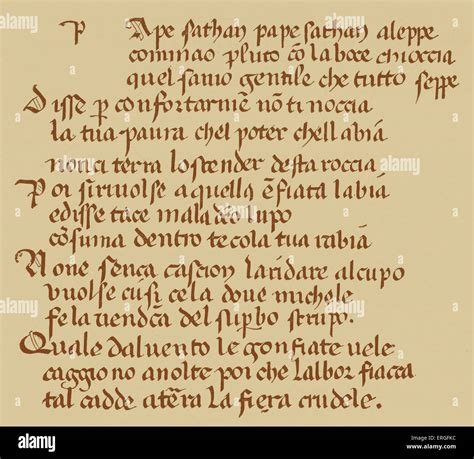 P Ape sathan pape sathan aleppe
cominao pluto cō la boce chioccia
quel savio gentile che tutto seppe
Disse p confortarmē nō ti noccia
la tua paura chel poter chell abiā
non ci terra lo scender desta roccia
Poi si rivolse a quella ēfiata labiā
e disse tace maladeo lupo
cōsuma dentro te co la tua rabiā
None senca cascion landare al cupo
vuolse cusi cela dove michele
fe la vendcā del supbo strupo.
Quale dal vento le gonfiate vele
caggiono avolte poi che lalbor fiacca
tal cadde a tēra la fiera crudele.
alamy
a
alamy stock photo
ERGFKC
www.alamy.com